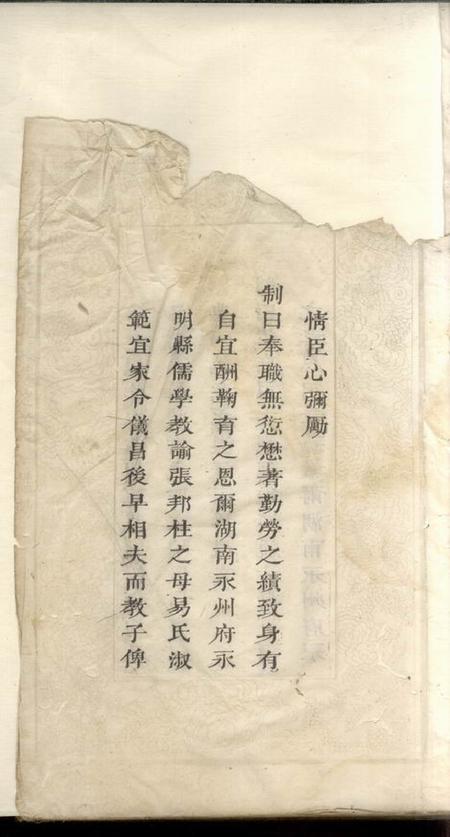 情臣心彌勵
制曰奉職無愆懋著勤勞之績致身有
自宜酬鞠育之恩爾湖南永州府永
明縣儒學教諭張邦柱之母易氏淑
範宜家令儀昌後早相夫而教子俾